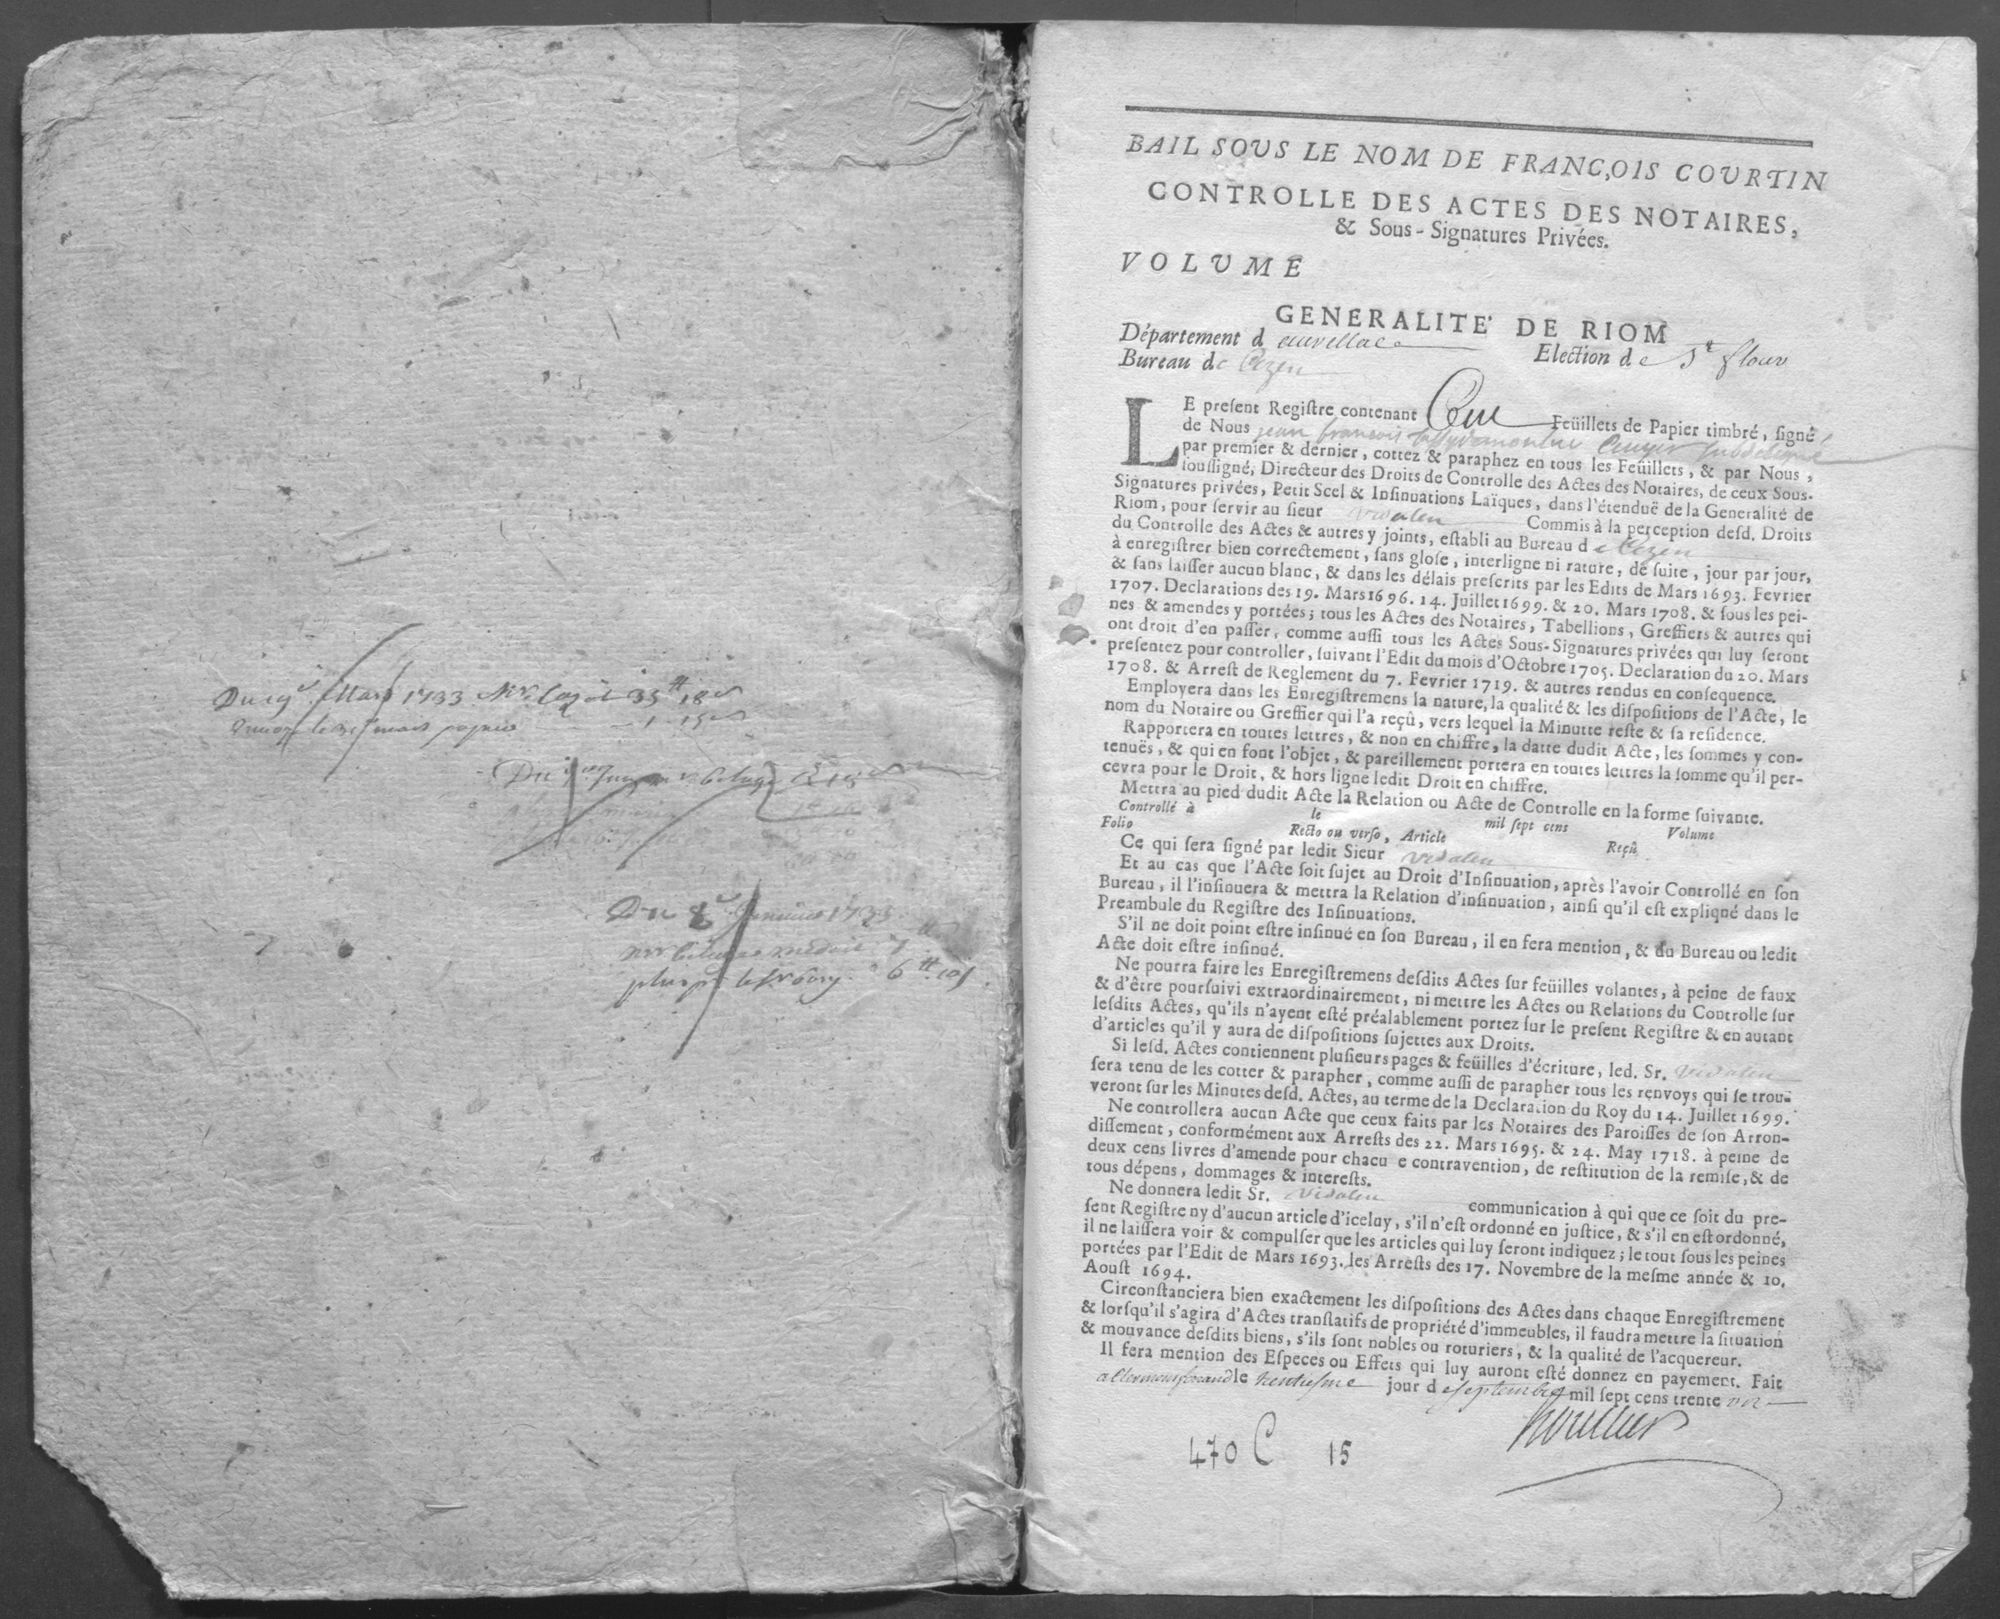 Du 19e. Mars 1733 Mr.
Du
Du 8e. Janvier 1733
BAIL SOUS LE NOM DE FRANC,OIS COURTIN
CONTROLLE DES ACTES DES NOTAIRES,
& Sous-Signatures Privées.
VOLUME
GENERALITE' DE RIOM
Département d'aurillac Election de St flour
Bureau de Cezen
LE preſent Regiſtre contenant Cent Feüillets de Papier timbré, ſigné
de Nous jean francois Ecuyer subdelegué
par premier & dernier, cottez & paraphez en tous les Feüillets, & par Nous,
ſouſſigné, Directeur des Droits de Controlle des Actes des Notaires, de ceux Sous-
Signatures privées, Petit Scel & Inſinuations Laïques, dans l'étenduë de la Generalité de
Riom, pour ſervir au ſieur vidalen Commis à la perception deſd. Droits
du Controlle des Actes & autres y joints, eſtabli au Bureau de Cezen
à enregiſtrer bien correctement, ſans gloſe, interligne ni rature, de ſuite, jour par jour,
& ſans laiſſer aucun blanc, & dans les délais preſcrits par les Edits de Mars 1693. Fevrier
1707. Declarations des 19. Mars 1696. 14. Juillet 1699. & 20. Mars 1708. & ſous les pei-
nes & amendes y portées; tous les Actes des Notaires, Tabellions, Greffiers & autres qui
ont droit d'en paſſer, comme auſſi tous les Actes Sous-Signatures privées qui luy ſeront
preſentez pour controller, ſuivant l'Edit du mois d'Octobre 1705. Declaration du 20. Mars
1708. & Arreſt de Reglement du 7. Fevrier 1719. & autres rendus en conſequence.
Employera dans les Enregiſtremens la nature, la qualité & les diſpoſitions de l'Acte, le
nom du Notaire ou Greffier qui l'a reçû, vers lequel la Minutte reſte & ſa reſidence.
Rapportera en toutes lettres, & non en chiffre, la datte dudit Acte, les ſommes y con-
tenuës, & qui en font l'objet, & pareillement portera en toutes lettres la ſomme qu'il per-
cevra pour le Droit, & hors ligne ledit Droit en chiffre.
Mettra au pied dudit Acte la Relation ou Acte de Controlle en la forme ſuivante.
Controllé à le mil ſept cens Volume
Folio Recto ou verſo, Article Reçû
Ce qui ſera ſigné par ledit Sieur vidalen
Et au cas que l'Acte ſoit ſujet au Droit d'Inſinuation, après l'avoir Controllé en ſon
Bureau, il l'inſinuera & mettra la Relation d'inſinuation, ainſi qu'il eſt expliqué dans le
Preambule du Regiſtre des Inſinuations.
S'il ne doit point eſtre inſinué en ſon Bureau, il en fera mention, & du Bureau ou ledit
Acte doit eſtre inſinué.
Ne pourra faire les Enregiſtremens deſdits Actes ſur feüilles volantes, à peine de faux
& d'être pourſuivi extraordinairement, ni mettre les Actes ou Relations du Controlle ſur
leſdits Actes, qu'ils n'ayent eſté préalablement portez ſur le preſent Regiſtre & en autant
d'articles qu'il y aura de diſpoſitions ſujettes aux Droits.
Si leſd. Actes contiennent pluſieurs pages & feüilles d'écriture, led. Sr. vidalen
ſera tenu de les cotter & parapher, comme auſſi de parapher tous les renvoys qui ſe trou-
veront ſur les Minutes deſd. Actes, au terme de la Declaration du Roy du 14. Juillet 1699.
Ne controllera aucun Acte que ceux faits par les Notaires des Paroiſſes de ſon Arron-
diſſement, conformément aux Arreſts des 22. Mars 1695. & 24. May 1718. à peine de
deux cens livres d'amende pour chacu e contravention, de reſtitution de la remiſe, & de
tous dépens, dommages & intereſts.
Ne donnera ledit Sr. vidalen communication à qui que ce ſoit du pre-
ſent Regiſtre ny d'aucun article d'iceluy, s'il n'eſt ordonné en juſtice, & s'il en eſt ordonné,
il ne laiſſera voir & compulſer que les articles qui luy ſeront indiquez; le tout ſous les peines
portées par l'Edit de Mars 1693. les Arreſts des 17. Novembre de la meſme année & 10.
Aouſt 1694.
Circonſtanciera bien exactement les diſpoſitions des Actes dans chaque Enregiſtrement
& lorſqu'il s'agira d'Actes tranſlatifs de propriété d'immeubles, il faudra mettre la ſituation
& mouvance deſdits biens, s'ils ſont nobles ou roturiers, & la qualité de l'acquereur.
Il fera mention des Eſpeces ou Effets qui luy auront eſté donnez en payement. Fait
a Clermontferrand le trentiesme jour de septembre mil ſept cens trente
470 C 15